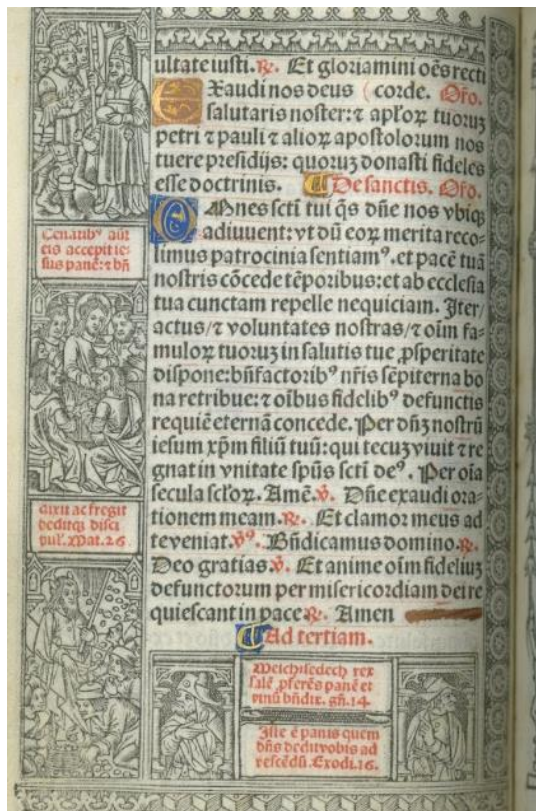 ultate iusti. ℟. Et gloriamini oēs recti
EXaudi nos deus ( corde. Oŕo.
salutaris noster: ⁊ apl'oꝝ tuoruꝫ
petri ⁊ pauli ⁊ alioꝝ apostolorum nos
tuere presidijs: quoruꝫ donasti fideles
esse doctrinis. De sanctis. Oŕo.
OMnes sctī tui q̄s dn̄e nos vbiqꝫ
adiuuent: vt dū eoꝝ merita reco-
limus patrocinia sentiamꝰ. et pacē tuā
nostris cōcede tēporibus: et ab ecclesia
tua cunctam repelle nequiciam. Iter/
actus/ ⁊ voluntates nostras/ ⁊ oīm fa-
muloꝝ tuoruꝫ in salutis tue ꝓsperitate
dispone: bn̄factoribꝰ nr̄is sēpiterna bo
na retribue: ⁊ oībus fidelibꝰ defunctis
requiē eternā concede. Per dn̄ꝫ nostrū
iesum xp̄m filiū tuū: qui tecuꝫ viuit ⁊ re
gnat in vnitate spūs sctī deꝰ. Per oīa
secula scl'oꝝ. Amē. ℣. Dn̄e exaudi ora-
tionem meam. ℟. Et clamor meus ad
te veniat. ℣ꝰ. Bn̄dicamus domino. ℟.
Deo gratias ℣. Et anime oīm fideliuꝫ
defunctorum per misericordiam dei re
quiescant in pace ℟. Amen
Ad tertiam.
Cenātibꝰ aūt
eis accepit ie-
sus panē: ⁊ bn̄
dixit ac fregit
deditqꝫ disci
pul'. Mat. 26
Melchisedech rex
salē ꝓferēs panē et
vinū bn̄dix. gn̄. 14.
Iste ē panis quem
dn̄s dedit vobis ad
vescēdū. Exodi. 16.